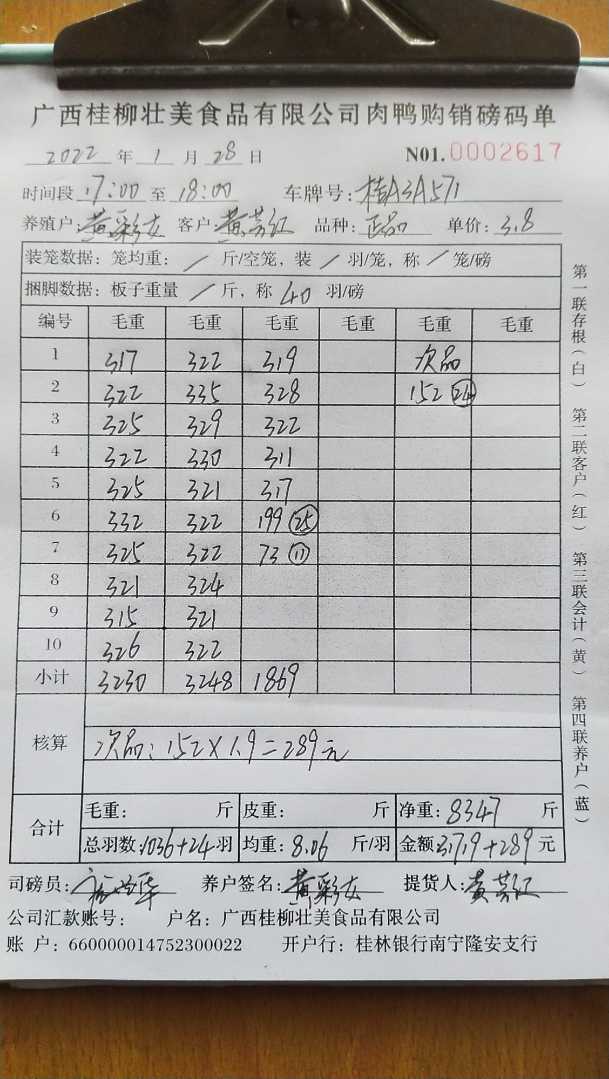 广西桂柳壮美食品有限公司肉鸭购销磅码单
2022 年 1 月 28 日 N01.0002617
时间段 17:00 至 18:00 车牌号: 桂A3A571
养殖户: 黄彩女 客户: 黄芳红 品种: 正品 单价: 3.8
装笼数据: 笼均重: / 斤/空笼, 装 / 羽/笼, 称 / 笼/磅
捆脚数据: 板子重量 / 斤, 称 40 羽/磅
编号 毛重 毛重 毛重 毛重 毛重 毛重
1 317 322 319 次品
2 322 335 328 152 24
3 325 329 322
4 322 330 311
5 325 321 317
6 332 322 199 25
7 325 322 73 11
8 321 324
9 315 321
10 326 322
小计 3230 3248 1869
核算 次品: 152×1.9=289元
合计 毛重: 斤 皮重: 斤 净重: 8347 斤
总羽数: 1036+24 羽 均重: 8.06 斤/羽 金额: 31719+289 元
司磅员: 养户签名: 黄彩女 提货人: 黄芳红
公司汇款账号: 户名: 广西桂柳壮美食品有限公司
账 户: 660000014752300022 开户行: 桂林银行南宁隆安支行
第一联存根(白) 第二联客户(红) 第三联会计(黄) 第四联养户(蓝)